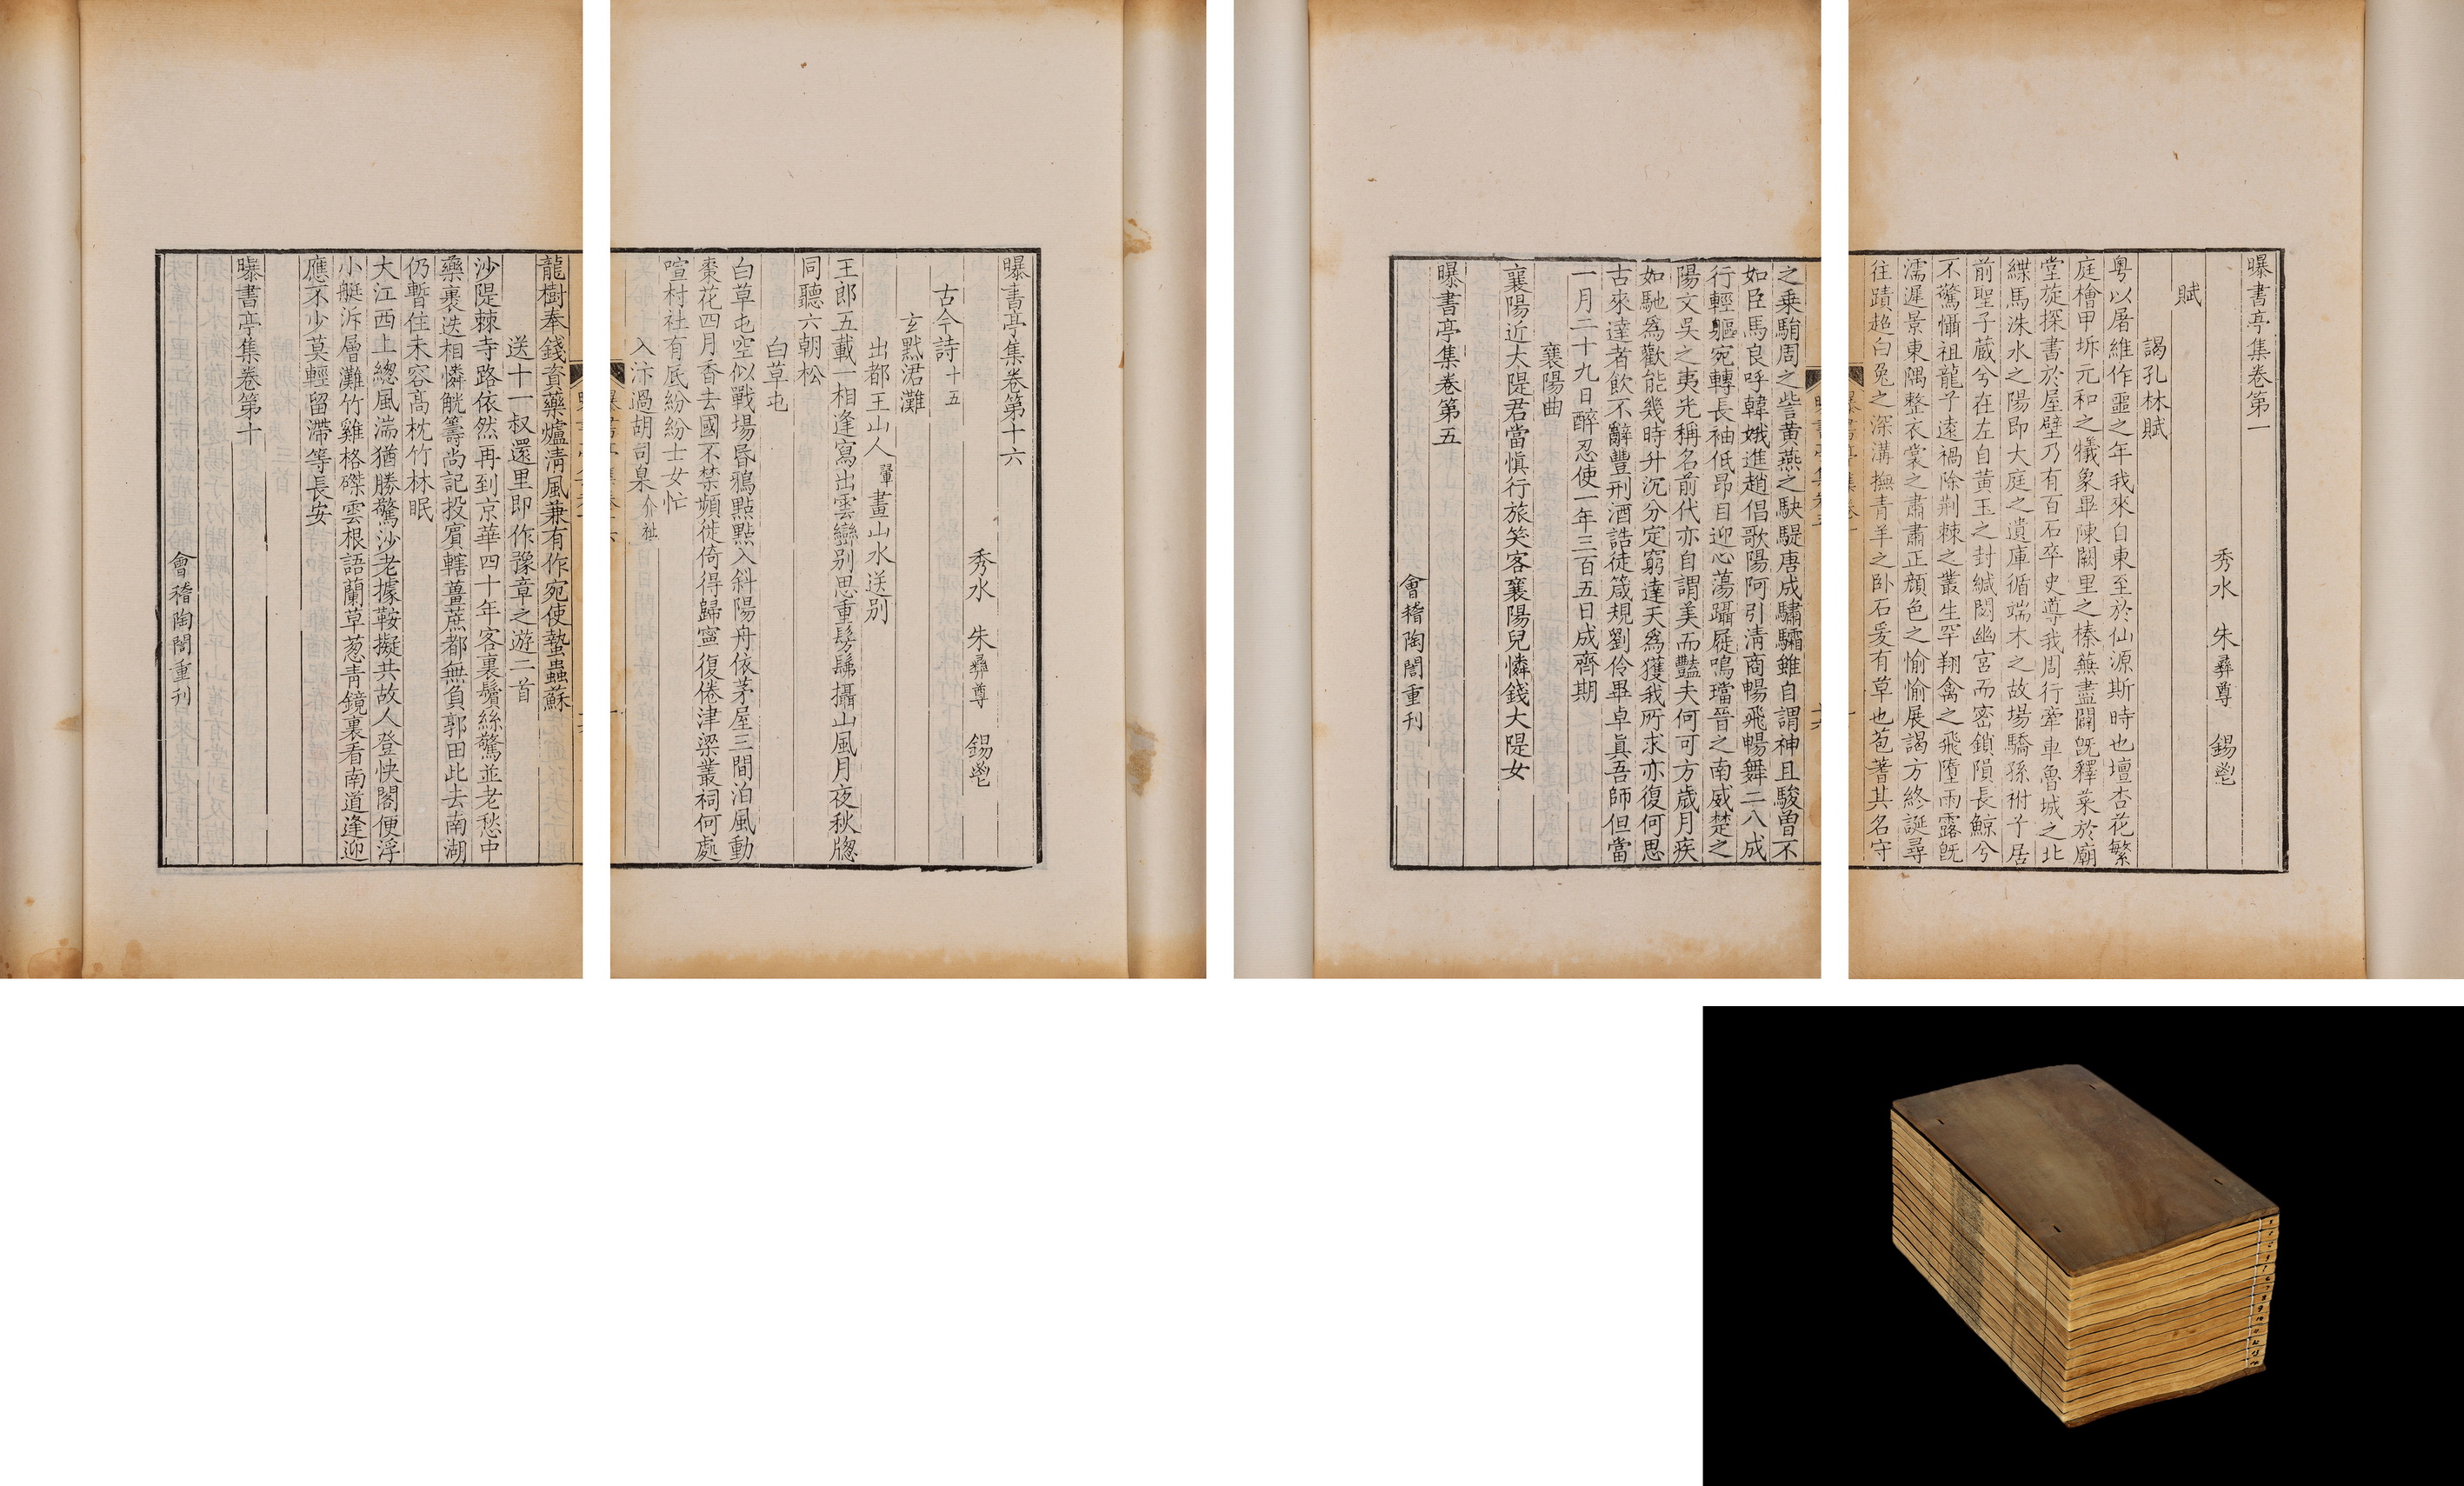 曝書亭集卷第一
秀水 朱彝尊 錫鬯
賦
謁孔林賦
粵以屠維作噩之年我來自東至於仙源斯時也壇杏花繁
庭檜甲坼元和之犧象畢陳闕里之榛蕪盡闢旣釋菜於廟
堂旋探書於屋壁乃有百石卒史導我周行牽車魯城之北
緤馬洙水之陽即大庭之遺庫循端木之故場驕孫祔子居
前聖子蔵兮在左自黃玉之封緘閟幽宮而密鎖隕長鯨兮
不驚懾祖龍子逺禍除荆棘之叢生罕翔禽之飛墮雨露旣
濡遲景東隅整衣裳之肅肅正顔色之愉愉展謁方終誕尋
往蹟超白兔之深溝撫青羊之卧石爰有草也苞蓍其名守
之乗騧周之訾黃燕之駃騠唐成驌驦雖自謂神且駿曽不
如臣馬良呼韓娥進趙倡歌陽阿引淸商暢飛暢舞二八成
行輕軀宛轉長袖低昂目迎心蕩躡屣鳴璫晉之南威楚之
陽文吳之夷光稱名前代亦自謂美而豔夫何可方歲月疾
如馳爲歡能幾時升沉分定窮達天爲獲我所求亦復何思
古來達者飲不辭豐刑酒誥徒箴規劉伶畢卓眞吾師但當
一月二十九日醉忍使一年三百五日成齊期
襄陽曲
襄陽近大隄君當愼行旅笑客襄陽兒憐錢大隄女
曝書亭集卷第五
會稽陶誾重刊
曝書亭集卷第十六
秀水 朱彝尊 錫鬯
古今詩十五
玄黓涒灘
出都王山人翬畫山水送别
王郎五載一相逢寫出雲巒别思重髣髴攝山風月夜秋牕
同聽六朝松
白草屯
白草屯空似戰塲昬鴉點點入斜陽舟依茅屋三間泊風動
棗花四月香去國不禁頻徙倚得歸寧復倦津梁叢祠何處
喧村社有底紛紛士女忙
入汴過胡司臬介祉
龍樹奉錢資藥爐淸風兼有作宛使蟄蟲蘇
送十一叔還里即作豫章之遊二首
沙隄棘寺路依然再到京華四十年客裏鬢絲驚並老愁中
藥裹迭相憐觥籌尚記投賔轄薑蔗都無負郭田此去南湖
仍暫住未容髙枕竹林眠
大江西上總風湍猶勝驚沙老據鞍擬共故人登快閣便浮
小艇泝層灘竹雞格磔雲根語蘭草葱青鏡裏看南道逢迎
應不少莫輕留滯等長安
曝書亭集卷第十
會稽陶誾重刊